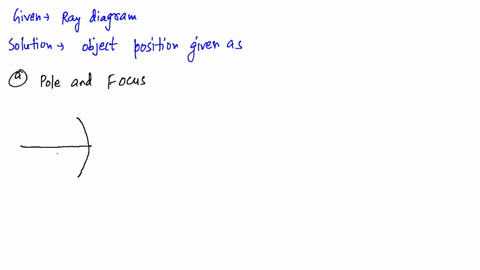 Given→ Ray diagram
Solution→ object position given as
ⓐ Pole and Focus